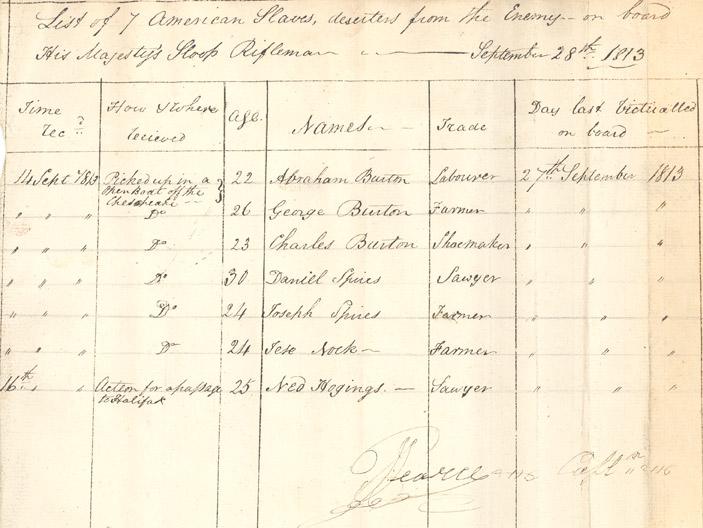 List of 7 American Slaves, deserters from the Enemy - on board
His Majesty's Sloop Rifleman September 28th 1813
Time Recd How & Where recieved Age. Names Trade Day last Victualled on board
14 Sept 1813 Picked up in a open Boat off the Chesapeake 22 Abraham Burton Labourer 27th September 1813
" " " Do 26 George Burton Farmer " " "
" " " Do 23 Charles Burton Shoemaker " " "
" " " Do 30 Daniel Spires Sawyer " " "
" " " Do 24 Joseph Spires Farmer " " "
" " " Do 24 Jese Nock Farmer " " "
16th " " for a passage to Halifax 25 Ned Hogings. Sawyer " " "
Pearce